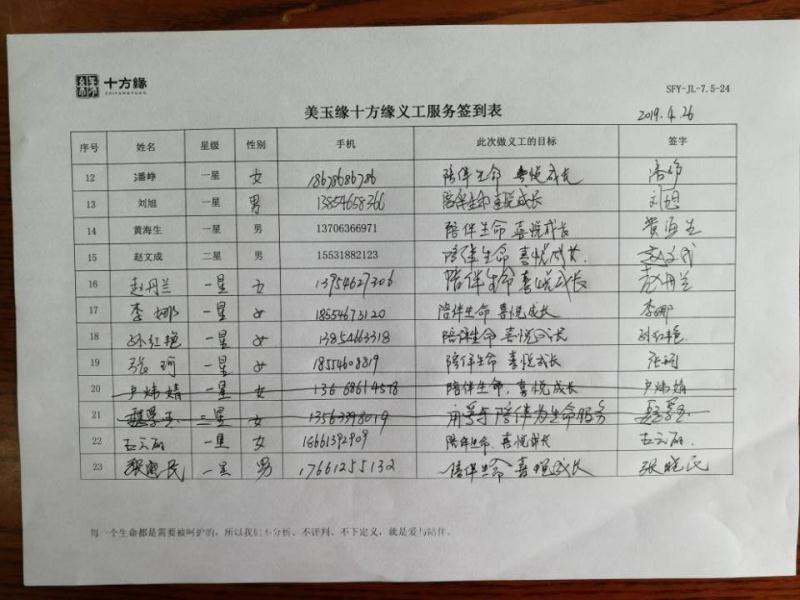 十方緣
SHIFANGYUAN
SFY-JL-7.5-24
美玉缘十方缘义工服务签到表
2019.4.26
序号 姓名 星级 性别 手机 此次做义工的目标 签字
12 潘峥 一星 女 18678686786 陪伴生命 喜悦成长 潘峥
13 刘旭 一星 男 13854658366 陪伴生命 喜悦成长 刘旭
14 黄海生 一星 男 13706366971 陪伴生命 喜悦成长 黄海生
15 赵文成 二星 男 15531882123 陪伴生命 喜悦成长 赵文成
16 赵丹兰 一星 女 13954627306 陪伴生命 喜悦成长 赵丹兰
17 李娜 一星 女 18554673120 陪伴生命 喜悦成长 李娜
18 孙红艳 一星 女 13854663318 陪伴生命 喜悦成长 孙红艳
19 张珂 一星 女 18554608819 陪伴生命 喜悦成长 张珂
20 卢炜婧 一星 女 陪伴生命.喜悦成长 卢炜婧
21 二星 女 13563398019 用尊与陪伴为生命服务
22 一星 女 16661392909 陪伴生命.喜悦成长
23 张晓民 一星 男 17661255132 陪伴生命 喜悦成长 张晓民
每一个生命都是需要被呵护的，所以我们不分析、不评判、不下定义，就是爱与陪伴。